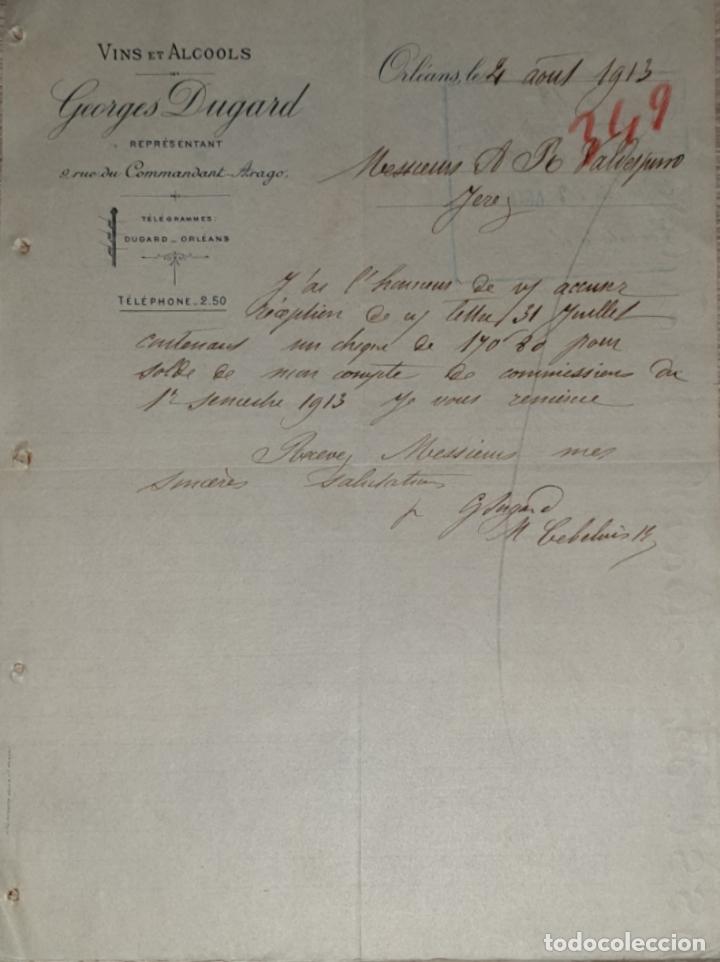 VINS ET ALCOOLS
Georges Dugard
REPRÉSENTANT
9 rue du Commandant Arago.
TÉLÉGRAMMES:
DUGARD _ ORLÉANS
TÉLÉPHONE_2.50
Orléans, le 4 août 1913
349
Messieurs A R Valdespino
Jerez
J'ai l'honneur de vs accuser
réception de vs lettre 31 Juillet
contenant un chèque de 170f 80 pour
solde de mon compte de commissions du
1er semestre 1913 Je vous remercie
Recevez Messieurs mes
sincères salutations
p GDugard
todocoleccion